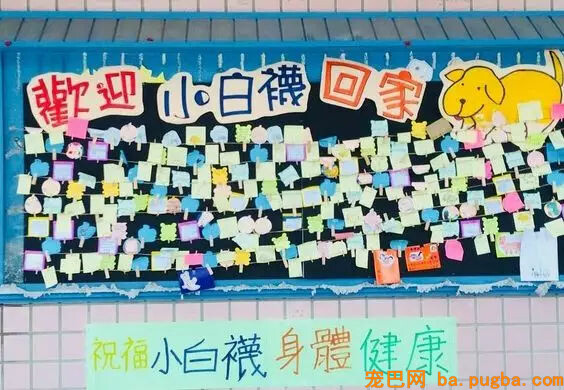 歡迎小白襪回家
祝福小白襪身體健康
宠巴网 ba.pugba.com